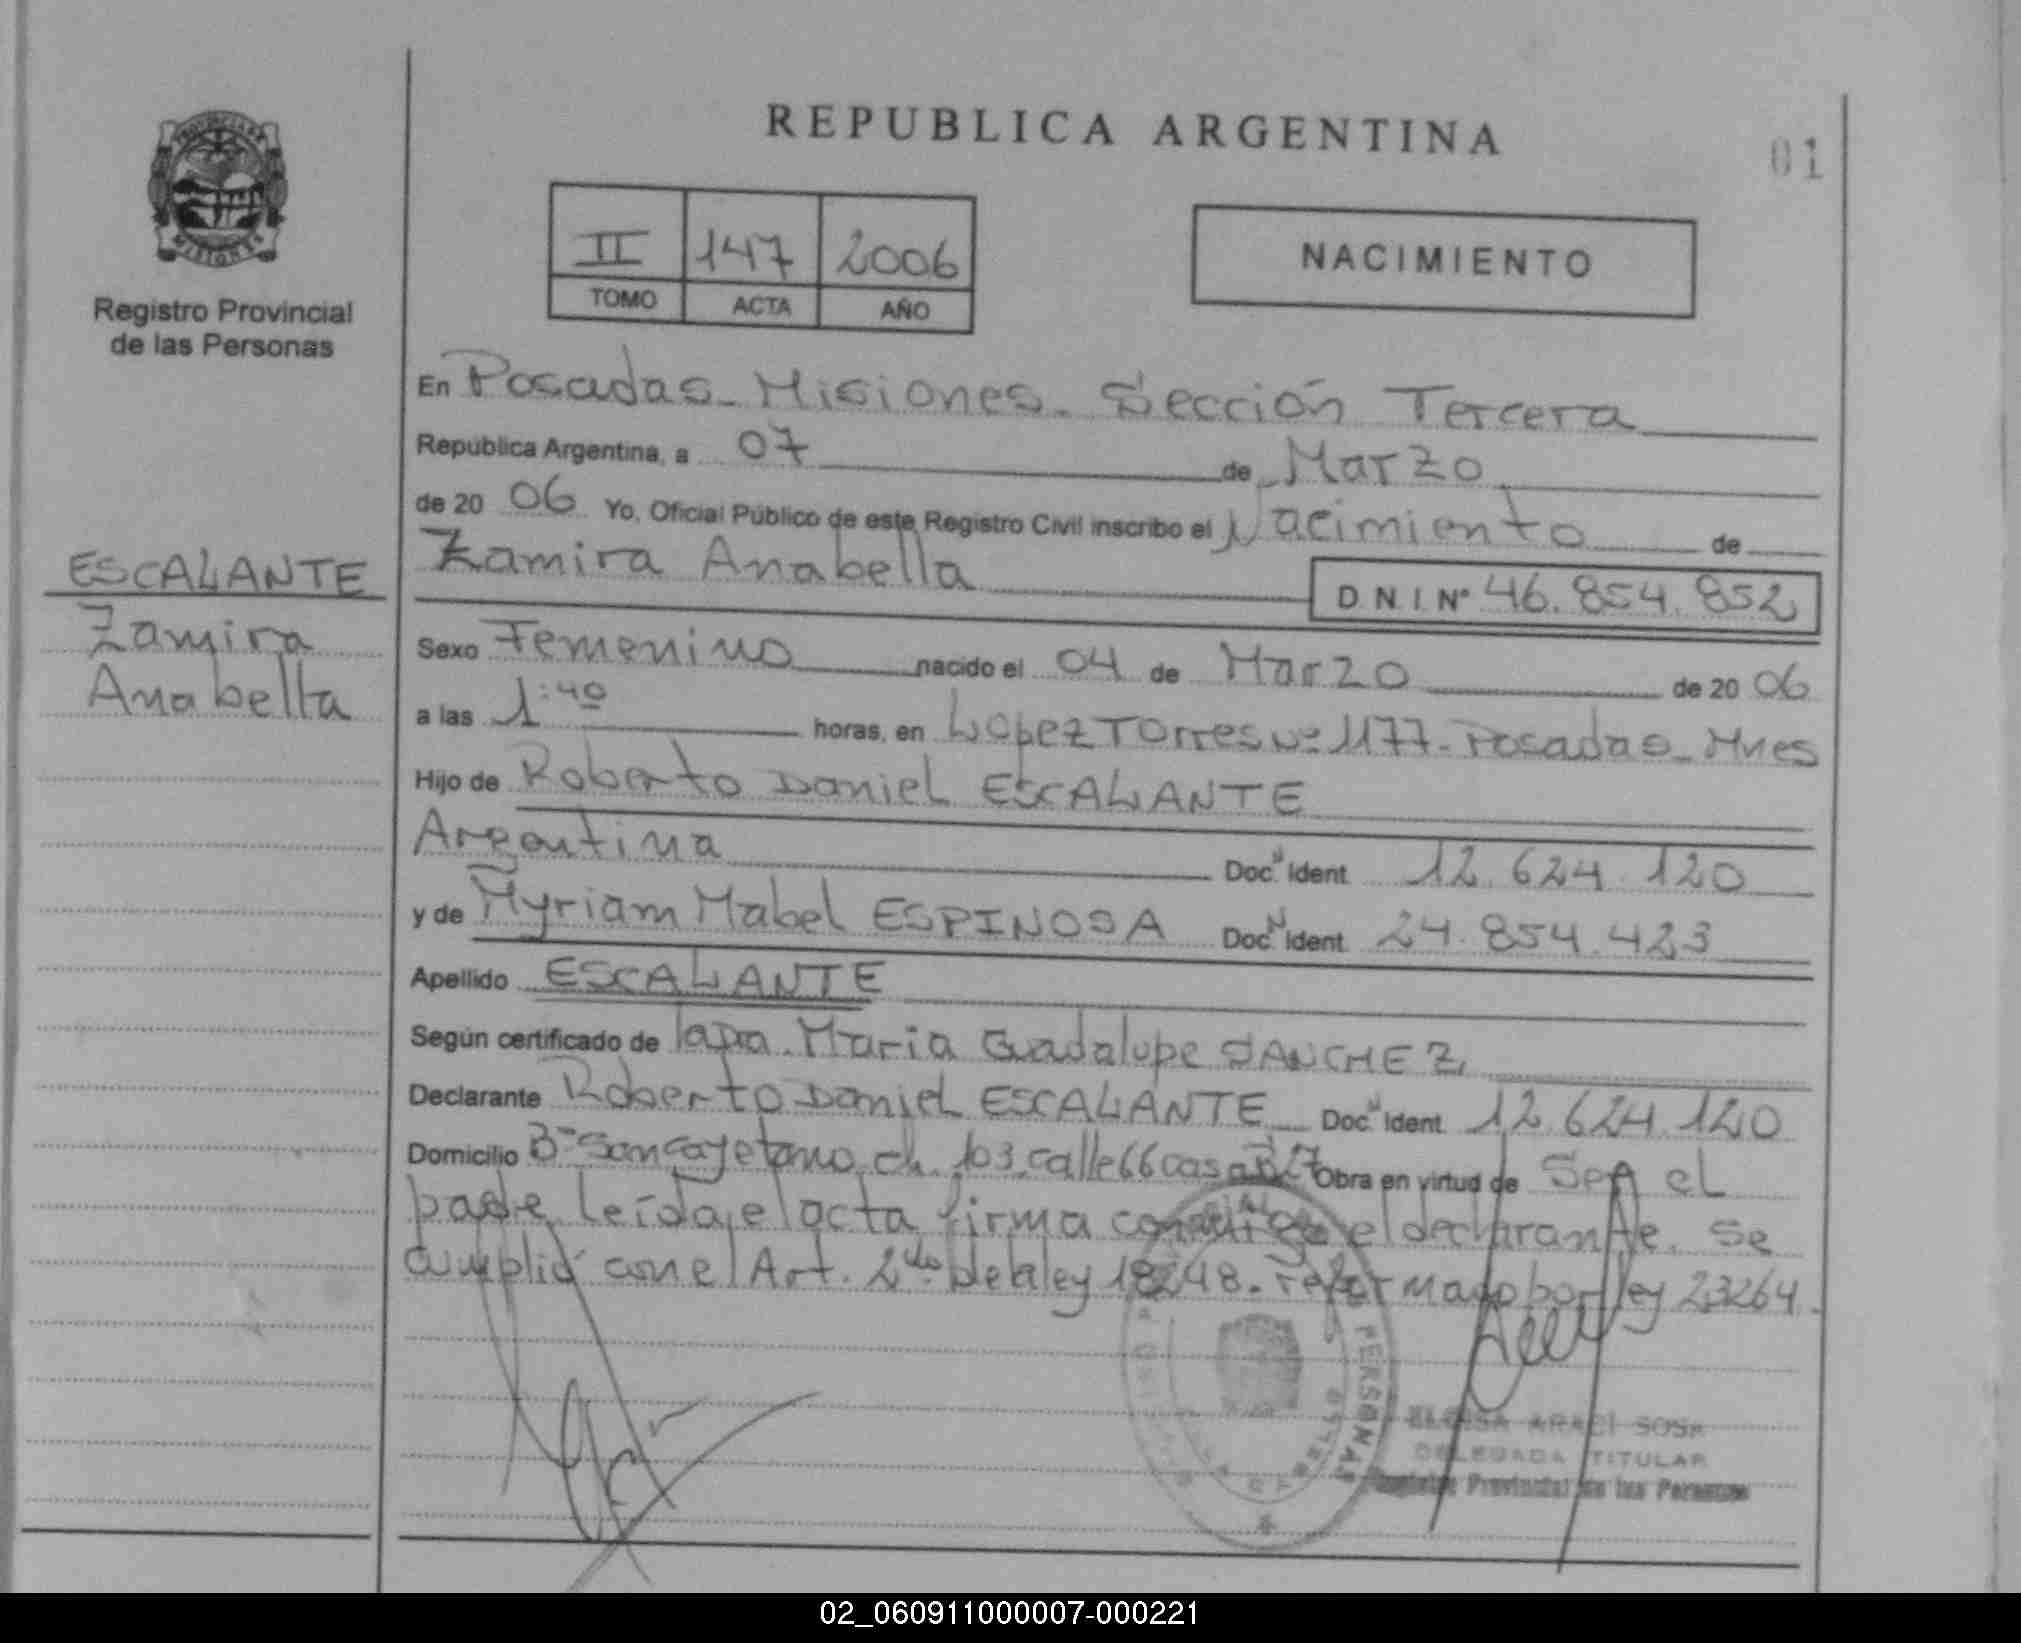 REPUBLICA ARGENTINA
01
PROVINCIA DE
MISIONES
Registro Provincial
de las Personas
II 147 2006
TOMO ACTA AÑO
NACIMIENTO
En Posadas - Misiones - Sección Tercera
República Argentina, a 07 de Marzo
de 20 06 Yo, Oficial Público de este Registro Civil inscribo el Nacimiento de
Zamira Anabella D.N.I. Nº 46.854.852
ESCALANTE
Zamira
Anabella
Sexo Femenino nacido el 04 de Marzo de 20 06
a las 1:40 horas, en Lopez Torres Nº 1177 - Posadas - Mnes
Hijo de Roberto Daniel ESCALANTE
Argentina Doc. Ident. 12.624.120
y de Myriam Mabel ESPINOSA Doc. Ident. 24.854.423
Apellido ESCALANTE
Según certificado de la Dra. Maria Guadalupe SANCHEZ
Declarante Roberto Daniel ESCALANTE Doc. Ident. 12.624.120
Domicilio Bº San Cayetano ch. 103 calle 66 casa Obra en virtud de Ser el
padre leída el acta firma conmigo el declarante. Se
cumplió con el Art. 2do de la ley 18248 - reformado por ley 23264.
PERSONAS
ELOISA ARACI SOSA
DELEGADA TITULAR
Registro Provincial de las Personas
02_060911000007-000221